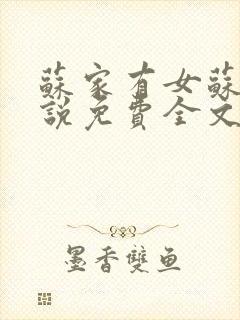 蘇家有女蘇
說免費全文
墨香雙魚